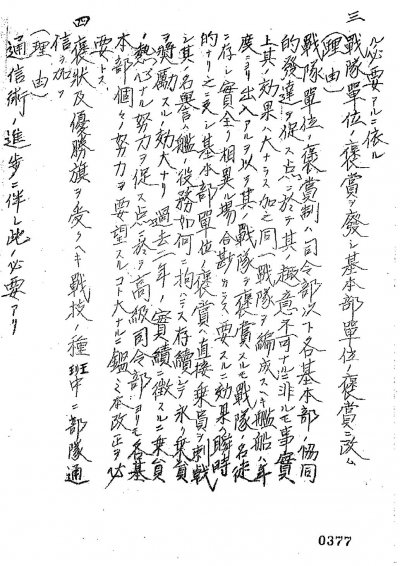 ル必要アルニ依ル
三 戰隊單位ノ褒賞ヲ廢シ基本部單位ノ褒賞ニ改ム
(理由)
戰隊單位ノ褒賞制ハ司令部以下各基本部ノ協同
的發達ヲ促ス点ニ於テ其ノ趣意不可ナルニ非ルモ事實
上其ノ効果ハ大ナラス加之同一戰隊ヲ編成スヘキ艦船ハ年
度ニヨリ出入アルヲ以テ其ノ戰隊ヲ褒賞スルモ戰隊ノ名徒
ニ存シ實全ク相異ル場合尠カラス要スルニ効果ハ瞬時
的ナリ之ニ反シ基本部單位ノ褒賞ハ直接乗員ヲ刺戟
シ其ノ名譽ハ艦ノ役務如何ニ拘ハラス存續シテ永ク乗員
ヲ奬勵スルノ効大ナリ過去二年ノ實績ニ徴スルニ乗員
ノ熱心ナル努力ヲ促ス点ニ於テ高級司令部ヨリモ各基
本部個々ノ努力ヲ要望スルコト大ナルニ鑑ミ本改正ヲ必
要トス
四 褒狀及優勝旗ヲ受クヘキ戰技ノ種班中ニ部隊通
信ヲ加フ
(理由)
通信術ノ進歩ニ伴ヒ此ノ必要アリ
0377